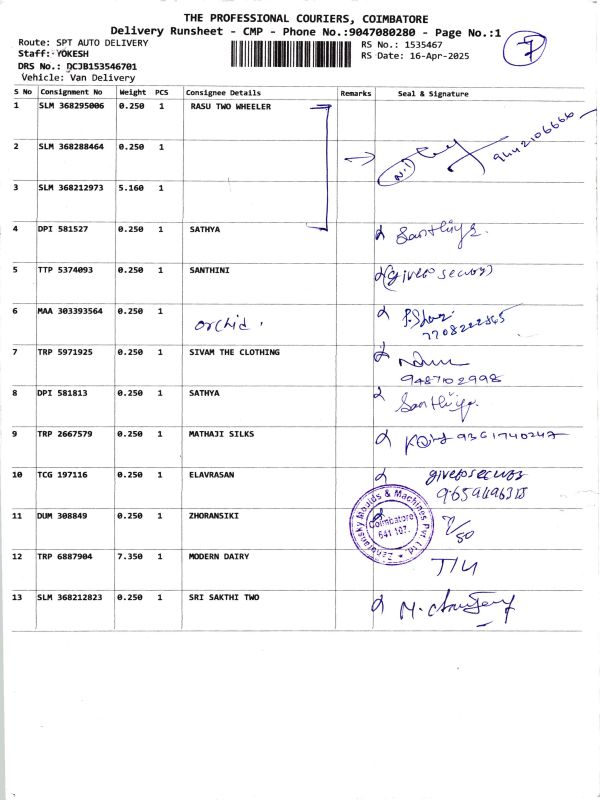 THE PROFESSIONAL COURIERS, COIMBATORE
Delivery Runsheet - CMP - Phone No.:9047080280 - Page No.:1
Route: SPT AUTO DELIVERY
Staff: YOKESH
DRS No.: DCJB153546701
Vehicle: Van Delivery
RS No.: 1535467
RS Date: 16-Apr-2025
7
S No Consignment No Weight PCS Consignee Details Remarks Seal & Signature
1 SLM 368295006 0.250 1 RASU TWO WHEELER
9442106666
2 SLM 368288464 0.250 1
3 SLM 368212973 5.160 1
4 DPI 581527 0.250 1 SATHYA Santhiya.
5 TTP 5374093 0.250 1 SANTHINI
6 MAA 303393564 0.250 1 orchid.
7 TRP 5971925 0.250 1 SIVAM THE CLOTHING
9487102998
8 DPI 581813 0.250 1 SATHYA Santhiya.
9 TRP 2667579 0.250 1 MATHAJI SILKS 9361740247
10 TCG 197116 0.250 1 ELAVRASAN
11 DUM 308849 0.250 1 ZHORANSIKI
Zahoransky Moulds & Machines Pvt. Ltd.
Coimbatore
641 107.
12 TRP 6887904 7.350 1 MODERN DAIRY
13 SLM 368212823 0.250 1 SRI SAKTHI TWO